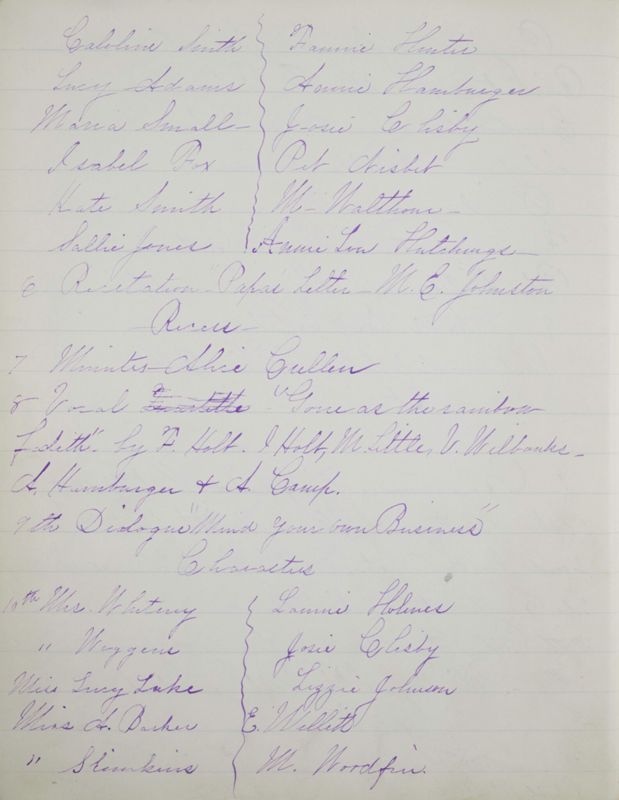 Caroline Smith Fannie Hunter
Lucy Adams Annie Hamburger
Maria Small Josie Clisby
Isabel Fox Pet Nisbet
Kate Smith M. Walthour
Sallie Jones Annie Lou Hutchings
6 Recetation "Papas Letter M. C. Johnston
Recess
7 Minutes Alice Cullen
8 Vocal "Gone as the rainbow
fadeth". by F. Holt. I Holt, M. Little, V. Wilbanks
A. Hamburger & A. Camp.
9th Dialogue "Mind Your own Business"
Characters
10th Mrs. Whiteny Lannie Holmes
" Waggens Josie Clisby
Miss Lucy Luke Lizzie Johnson
Miss A. Barker E. Willett
" Simkins M. Woodfin.